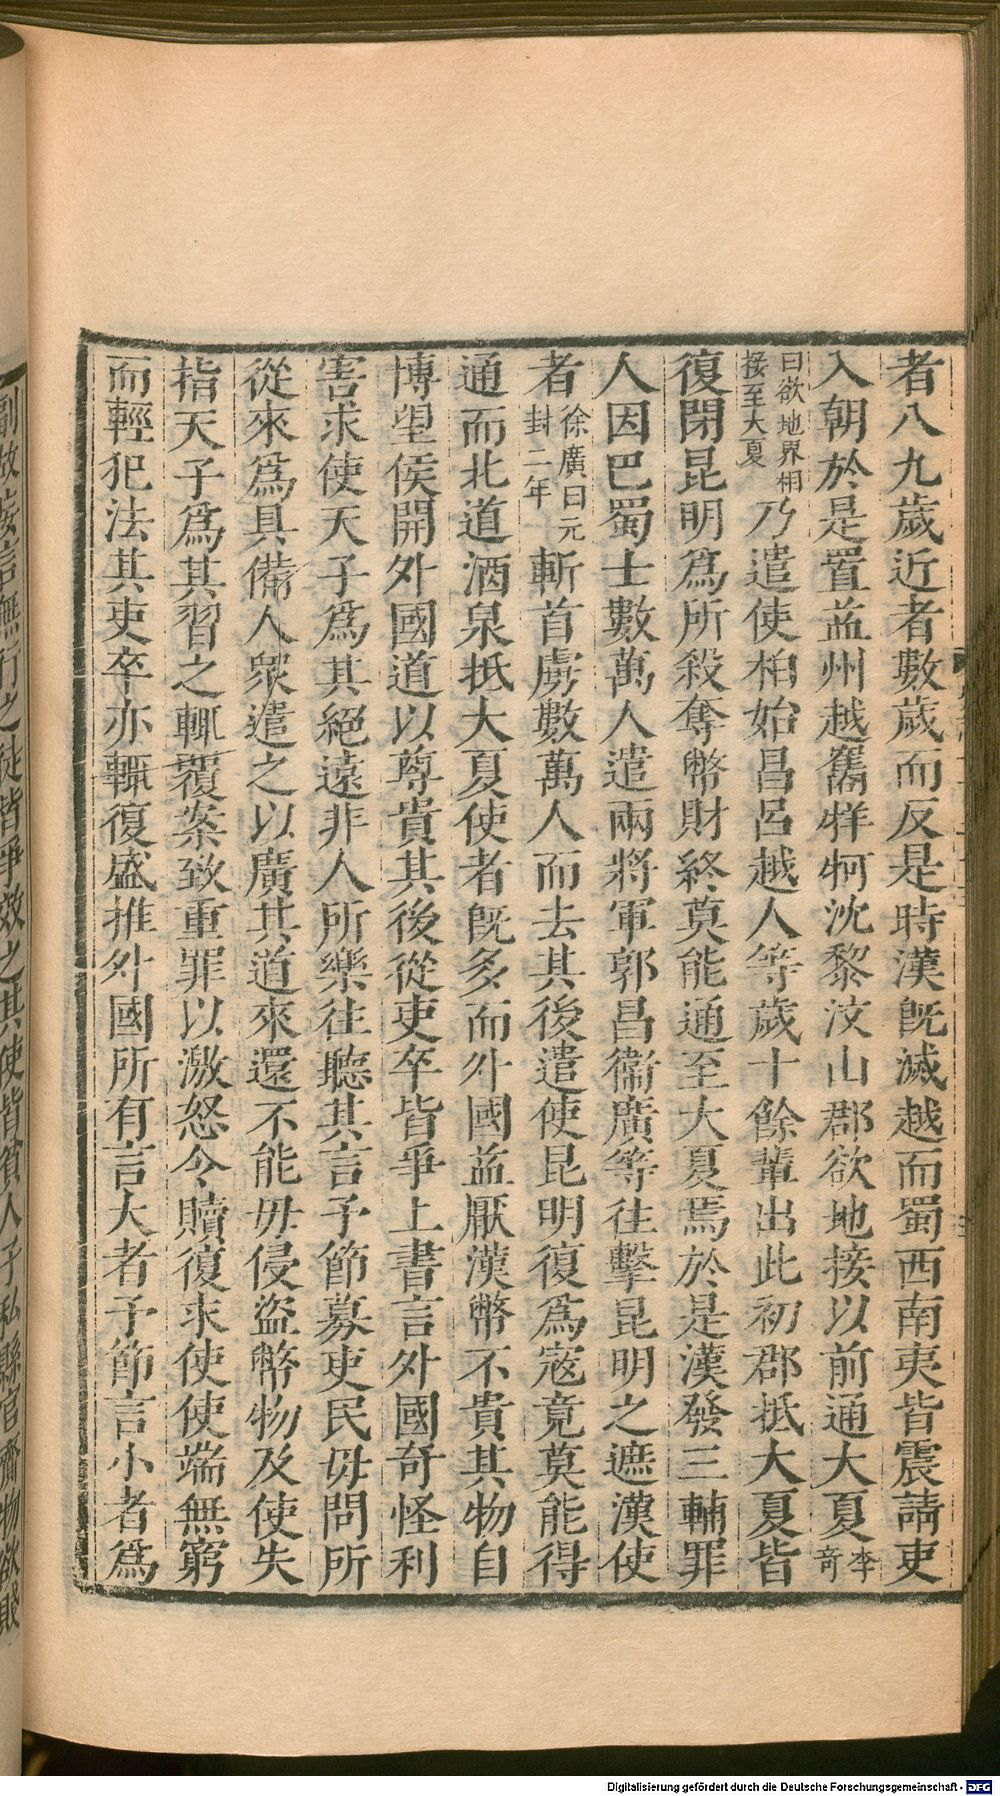 者八九歲近者數歲而反是時漢旣滅越而蜀西南夷皆震請吏
入朝於是置益州越嶲牂牁沈黎汶山郡欲地接以前通大夏李奇
曰欲地界相接至大夏乃遣使柏始昌呂越人等歲十餘輩出此初郡抵大夏皆
復閉昆明爲所殺奪幣財終莫能通至大夏焉於是漢發三輔罪
人因巴蜀士數萬人遣兩將軍郭昌衞廣等往擊昆明之遮漢使
者徐廣曰元封二年斬首虜數萬人而去其後遣使昆明復爲寇竟莫能得
通而北道酒泉抵大夏使者旣多而外國益厭漢幣不貴其物自
博望侯開外國道以尊貴其後從吏卒皆爭上書言外國奇怪利
害求使天子爲其絕遠非人所樂往聽其言予節募吏民毋問所
從來爲具備人眾遣之以廣其道來還不能毋侵盜幣物及使失
指天子爲其習之輒覆案致重罪以激怒令贖復求使使端無窮
而輕犯法其吏卒亦輒復盛推外國所有言大者予節言小者爲
副故妄言無行之徒皆爭效之其使皆貧人子私縣官齎物欲賤
Digitalisierung gefördert durch die Deutsche Forschungsgemeinschaft - DFG